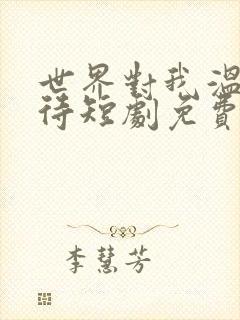 世界對我溫
待短劇免費
李慧芳